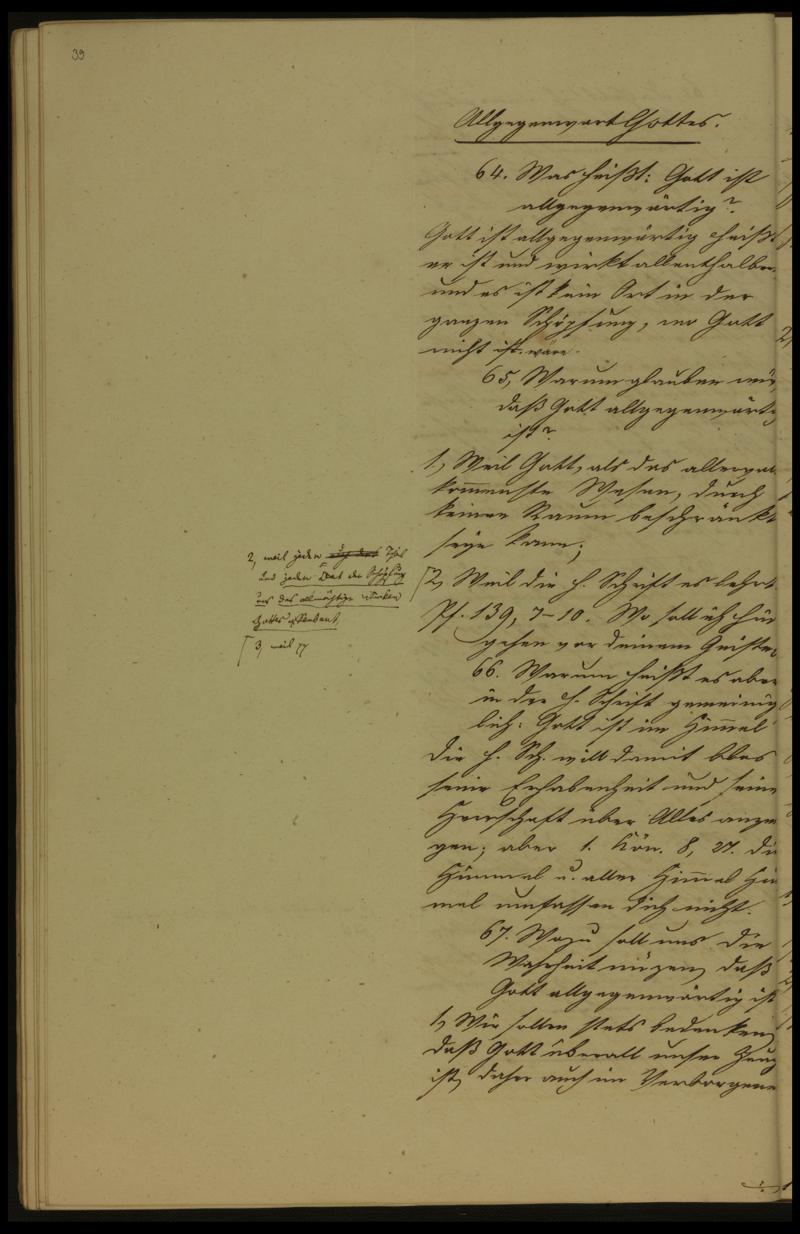 39
Allgegenwart Gottes.
64. Was heißt: Gott ist
allgegenwärtig?
Gott ist allgegenwärtig heißt
er ist und wirkt allenthalben
und es ist kein Ort in der
ganzen Schöpfung, wo Gott
nicht ist. wäre.
65, Warum glauben wir
daß Gott allgegenwärtig
ist?
1, Weil Gott, als das allervoll
kommenste Wesen, durch
keinen Raum beschränkt
seyn kann;
2, weil jeder Theil
und jeder der Schöpfung
uns das allmächtige Wirken
Gottes
3, weil
2, Weil die h. Schrift es lehrt.
Ps. 139, 7-10. Wo soll ich hin
gehen vor deinem Geiste
66. Warum heißt es aber
in der h. Schrift gemeinig
lich: Gott ist im Himmel
Die h. Sch. will damit blos
seine Erhabenheit und seine
Herrschaft über Alles anzei
gen; aber 1. Kön. 8, 27. die
Himmel u. aller Himmel Him
mel umfassen dich nicht.
67. Wozu soll uns die
Wahrheit nüzen, daß
Gott allgegenwärtig ist
1, Wir sollen stets bedenken,
daß Gott überall unser Zeug
ist, daher auch im Verborgenen